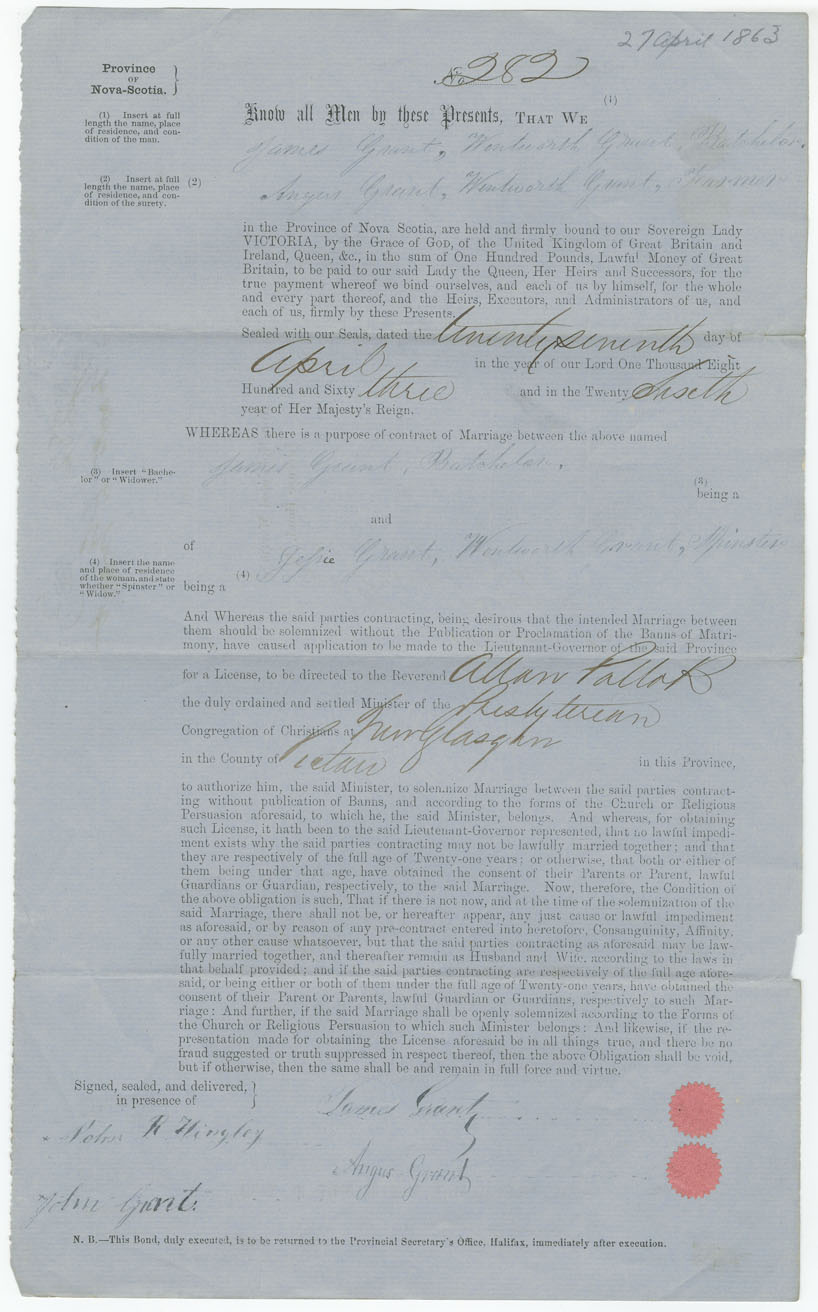 27 April 1863
Province
OF
Nova-Scotia.
No 282
(1) Insert at full
length the name, place
of residence, and con-
dition of the man.
(1)
Know all Men by these Presents, THAT WE
James Grant, Wentworth Grant, Batchelor.
(2) Insert at full
length the name, place
of residence, and con-
dition of the surety.
(2)
Angus Grant, Wentworth Grant, Farmer
in the Province of Nova Scotia, are held and firmly bound to our Sovereign Lady
VICTORIA, by the Grace of GOD, of the United Kingdom of Great Britain and
Ireland, Queen, &c., in the sum of One Hundred Pounds, Lawful Money of Great
Britain, to be paid to our said Lady the Queen, Her Heirs and Successors, for the
true payment whereof we bind ourselves, and each of us by himself, for the whole
and every part thereof, and the Heirs, Executors, and Administrators of us, and
each of us, firmly by these Presents.
Sealed with our Seals, dated the twenty seventh day of
April in the year of our Lord One Thousand Eight
Hundred and Sixty three and in the Twenty
year of Her Majesty's Reign.
WHEREAS there is a purpose of contract of Marriage between the above named
James Grant, Batchelor.
(3) Insert "Bache-
lor" or "Widower."
(3)
being a
and
of
Grant, Wentworth Grant, Spinster
(4) Insert the name
and place of residence
of the woman, and state
whether "Spinster" or
"Widow."
(4)
being a
And Whereas the said parties contracting, being desirous that the intended Marriage between
them should be solemnized without the Publication or Proclamation of the Banns of Matri-
mony, have caused application to be made to the Lieutenant-Governor of the said Province
for a License, to be directed to the Reverend Allan Pollok
the duly ordained and settled Minister of the Presbyterian
Congregation of Christians at New Glasgow
in the County of Pictou in this Province,
to authorize him, the said Minister, to solemnize Marriage between the said parties contract-
ing without publication of Banns, and according to the forms of the Church or Religious
Persuasion aforesaid, to which he, the said Minister, belongs. And whereas, for obtaining
such License, it hath been to the said Lieutenant-Governor represented, that no lawful impedi-
ment exists why the said parties contracting may not be lawfully married together; and that
they are respectively of the full age of Twenty-one years; or otherwise, that both or either of
them being under that age, have obtained the consent of their Parents or Parent, lawful
Guardians or Guardian, respectively, to the said Marriage. Now, therefore, the Condition of
the above obligation is such, That if there is not now, and at the time of the solemnization of the
said Marriage, there shall not be, or hereafter appear, any just cause or lawful impediment
as aforesaid, or by reason of any pre-contract entered into heretofore, Consanguinity, Affinity,
or any other cause whatsoever, but that the said parties contracting as aforesaid may be law-
fully married together, and thereafter remain as Husband and Wife, according to the laws in
that behalf provided; and if the said parties contracting are respectively of the full age afore-
said, or being either or both of them under the full age of Twenty-one years, have obtained the
consent of their Parent or Parents, lawful Guardian or Guardians, respectively to such Mar-
riage: And further, if the said Marriage shall be openly solemnized according to the Forms of
the Church or Religious Persuasion to which such Minister belongs: And likewise, if the re-
presentation made for obtaining the License aforesaid be in all things true, and there be no
fraud suggested or truth suppressed in respect thereof, then the above Obligation shall be void,
but if otherwise, then the same shall be and remain in full force and virtue.
Signed, sealed, and delivered,
in presence of
James Grant
John K Hingley
Angus Grant
John Grant.
N. B.—This Bond, duly executed, is to be returned to the Provincial Secretary's Office, Halifax, immediately after execution.